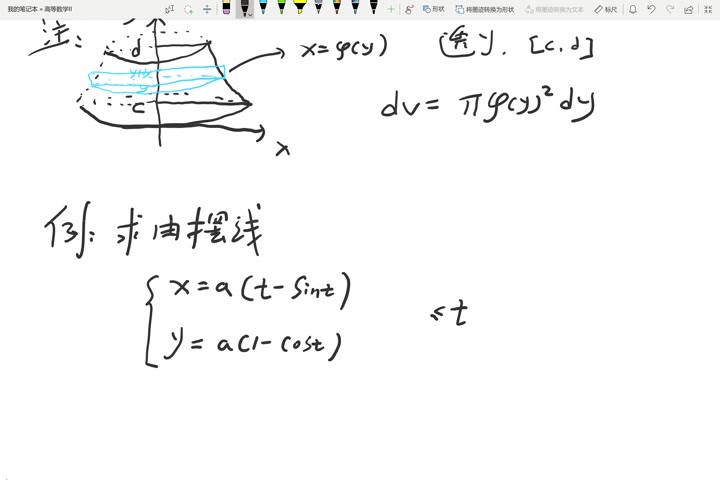 我的笔记本 » 高等数学II
形状
将墨迹转换为形状
将墨迹转换为文本
标尺
注:
d
x=φ(y)
选y. [c,d]
y
c
dv= πφ(y)²dy
x
例: 求由摆线
x=a(t-sint)
≤t
y=a(1-cost)